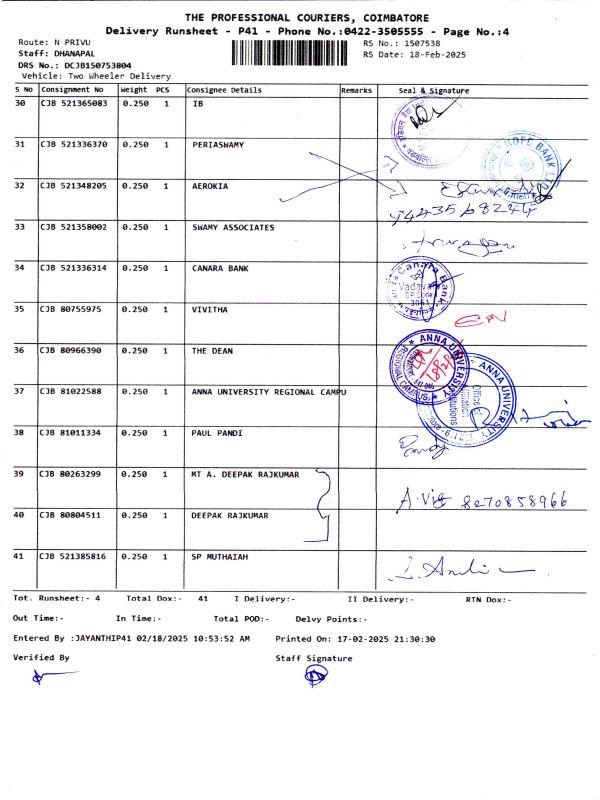 THE PROFESSIONAL COURIERS, COIMBATORE
Delivery Runsheet - P41 - Phone No.:0422-3505555 - Page No.:4
Route: N PRIVU
RS No.: 1507538
Staff: DHANAPAL
RS Date: 18-Feb-2025
DRS No.: DCJB150753804
Vehicle: Two Wheeler Delivery
S No Consignment No Weight PCS Consignee Details Remarks Seal & Signature
30 CJB 521365083 0.250 1 IB
31 CJB 521336370 0.250 1 PERIASWAMY
HDFC BANK LTD
32 CJB 521348205 0.250 1 AEROKIA
9443568244
33 CJB 521358002 0.250 1 SWAMY ASSOCIATES
34 CJB 521336314 0.250 1 CANARA BANK
Canara Bank
Vadavalli
DP Code
3061
35 CJB 80755975 0.250 1 VIVITHA
36 CJB 80966390 0.250 1 THE DEAN
ANNA UNIVERSITY
REGIONAL CAMPUS
37 CJB 81022588 0.250 1 ANNA UNIVERSITY REGIONAL CAMPU
ANNA UNIVERSITY
Office of
38 CJB 81011334 0.250 1 PAUL PANDI
Pandy
39 CJB 80263299 0.250 1 MT A. DEEPAK RAJKUMAR
A. Vig 8270858966
40 CJB 80804511 0.250 1 DEEPAK RAJKUMAR
41 CJB 521385816 0.250 1 SP MUTHAIAH
Tot. Runsheet:- 4 Total Dox:- 41 I Delivery:- II Delivery:- RTN Dox:-
Out Time:- In Time:- Total POD:- Delvy Points:-
Entered By :JAYANTHIP41 02/18/2025 10:53:52 AM Printed On: 17-02-2025 21:30:30
Verified By Staff Signature